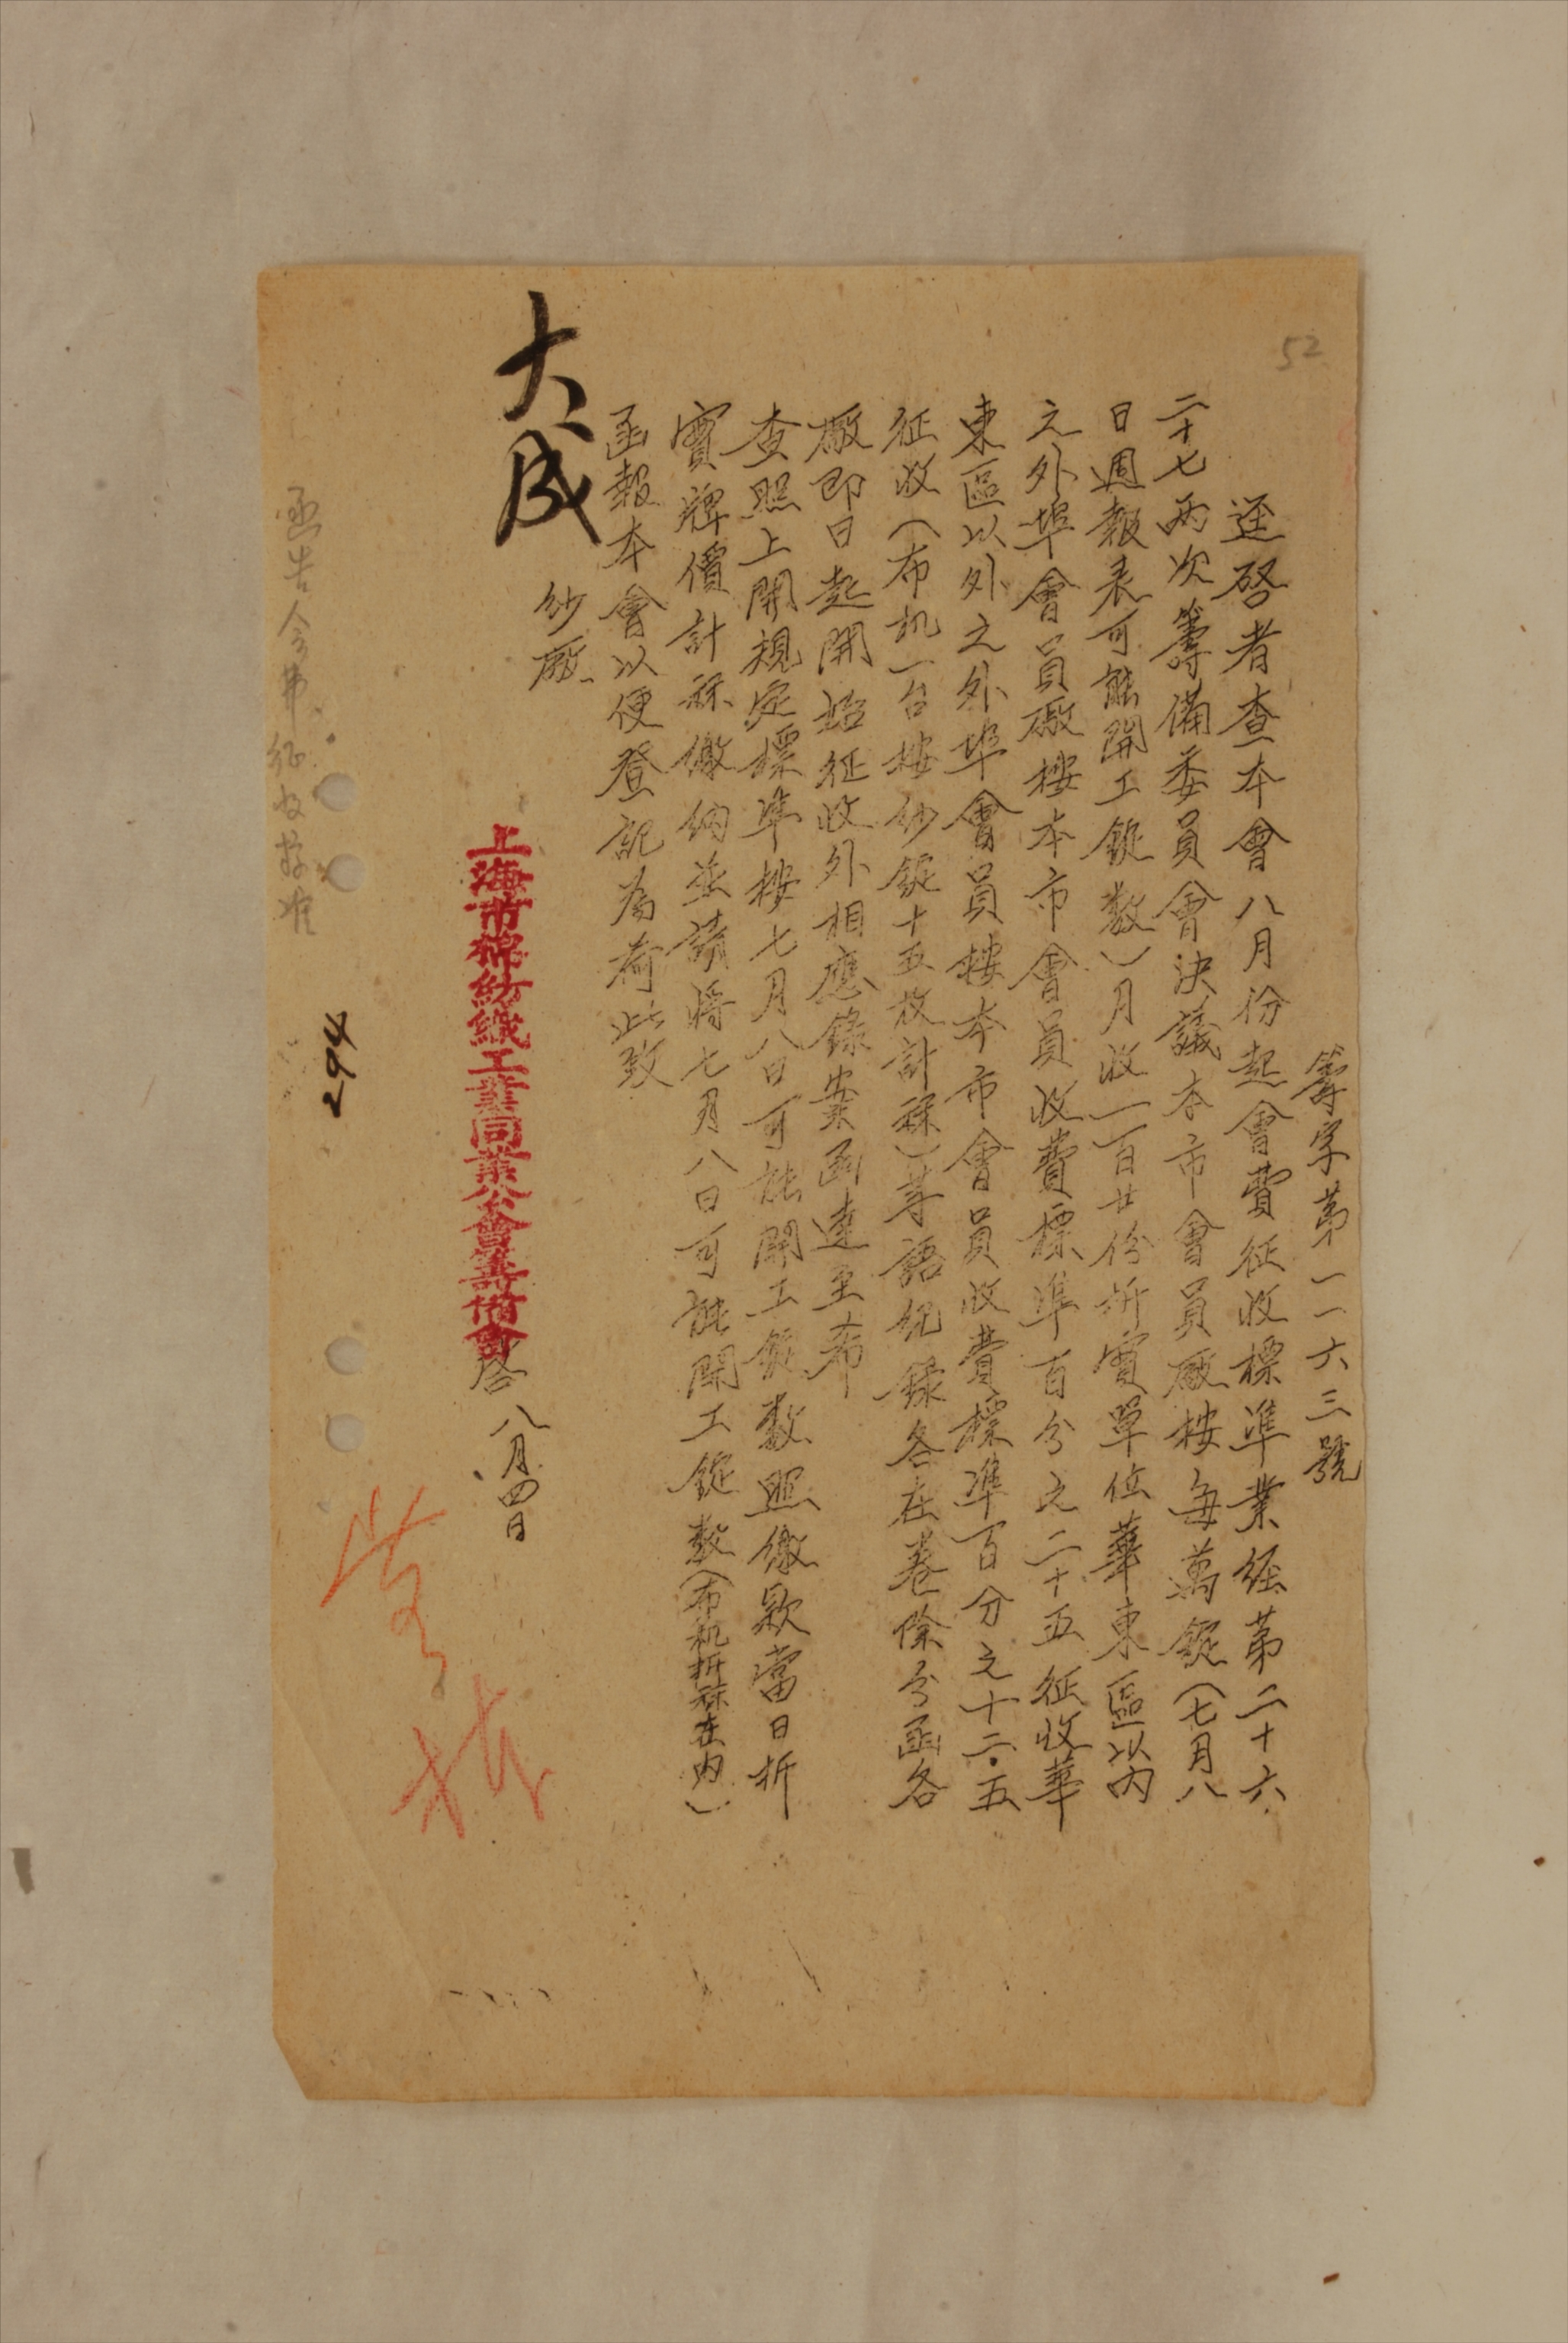 52
籌字第一一六三號
逕啓者查本會八月份起會費征收標準業經第二十六
二十七兩次籌備委員會決議本市會員廠按每萬錠(七月八
日週報表可能開工錠數)月收一百廿份折實單位華東區以內
之外埠會員廠按本市會員收費標準百分之二十五征收華
東區以外之外埠會員按本市會員收費標準百分之十二.五
征收(布机一台按紗錠十五枚計祘)等語紀錄各在卷除分函各
廠即日起開始征收外相應錄案函達至希
查照上開規定標準按七月八日可能開工錠數照繳款當日折
實牌價計祘繳納並請將七月八日可能開工錠數(布机折祘在內)
函報本會以便登記為荷此致
大成 紗廠
上海市棉紡織工業同業公會籌備會啓 八月四日
294
函告會費征收标准